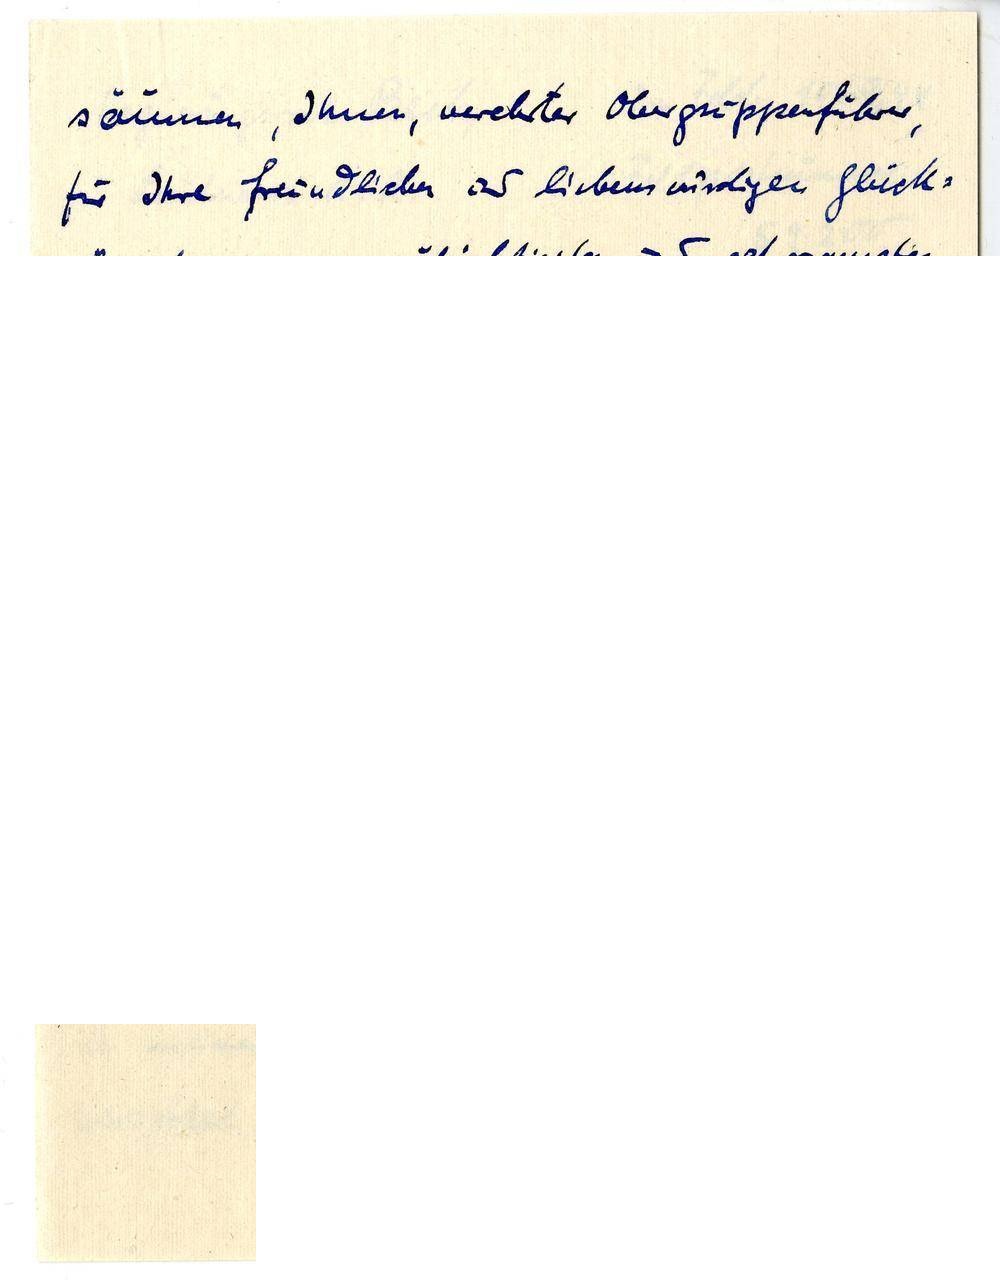 säumen, Ihnen, verehrter Obergruppenführer,
für Ihre freundlichen und liebenswürdigen Glück=